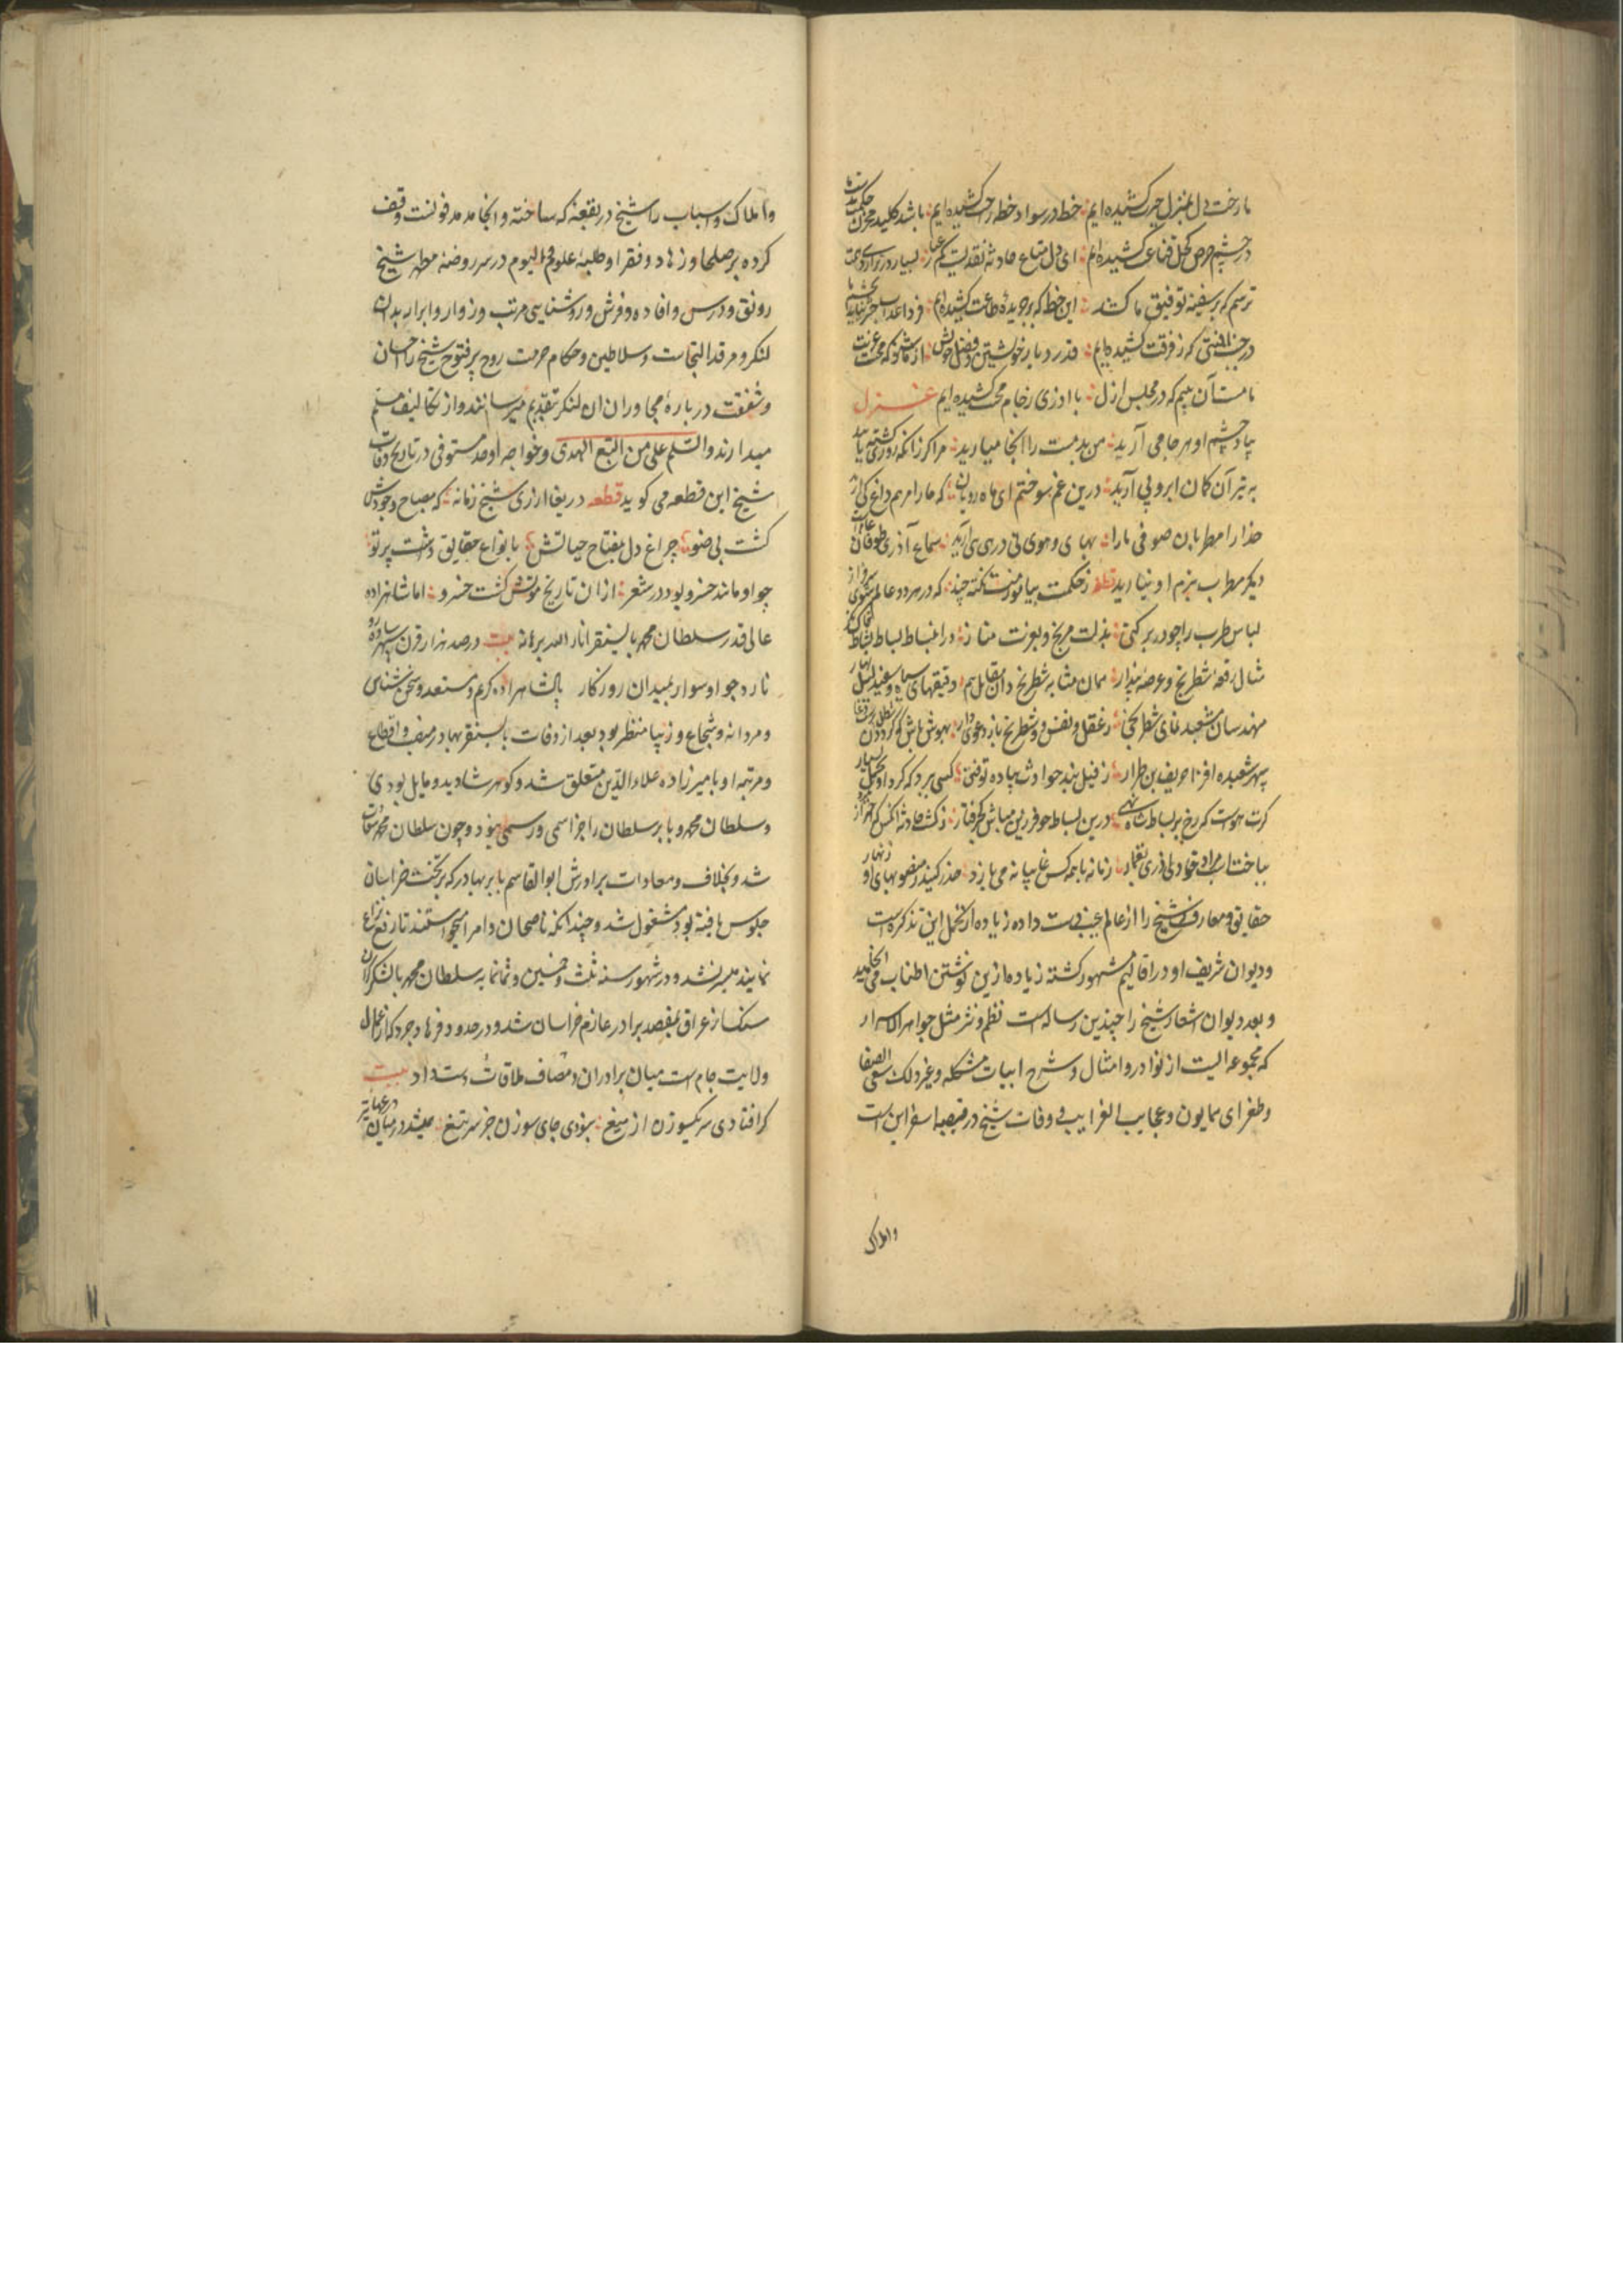 ما رخت دل بمنزل حیرت کشیده ایم خط در سواد خطه راحت کشیده ایم باشد کلید مخزن حکمت
در چشم حرص کحل قناعت کشیده ایم ای دل متاع حادثه نقدیست کم عیار بسیار در ترازوی همت
ترسم که بر سفینه توفیق ما کشند این خط که بر جریده طاعت کشیده ایم فردا عذاب
در جنب محنتی که ز فرقت کشیده ایم قدر دیار خویشتن و فضل خویش از ما شنو که محنت غربت
ما مست آن میم که در مجلس ازل با آذری ز جام محبت کشیده ایم غزل
بیاد چشم او هر جا می آرید من بدمست را آنجا میارید مرا کز زانکه روزی کشته یابید
به تیر آن کمان ابرو پی آرید درین غم سوختم ای ماه رویان که ما را مرهم داغ
خدا را مطربان صوفی ما را بهای و هوی نی در هی هی آرید سماع آذری طوفان
دیگر مطرب بزم او نیارید قطعه ز حکمت بیاموزمت نکته چند که در هر دو عالم شوی سرفراز
لباس طرب را چو در بر کنی بذلت مرنج و بعزت مناز در انبساط بساط نشاط
مثال رقعه شطرنج و عرصه پندار همان مشابه شطرنج دان مقابل هم دقیقهای سیاه و سفید لیل نهار
مهندسان مشعبد نمای شطرنجی ز عقل و نفس و شطرنج باز دعوی دار بهوش باش که گردون
سپهر شعبده افزا حریف بس طرار ز فیل بند حوادث پیاده نتوفتی کسی برد که کرد او
گرت هواست که رخ بر بساط شاه نهی درین بساط چو فرزین مباش کج رفتار ز کشت حادثه
بباخت زمانه با همه کس غایبانه می بازد حذر کنید ز منصوبهای او زنهار
حقایق و معارف شیخ را از عالم غیب دست داده زیاده از تحمل این تذکره است
و دیوان شریف او در اقالیم مشهور گشته زیاده ازین نوشتن اطناب می انجامید
و بعد دیوان اشعار شیخ را چندین رساله است نظم و نثر مثل جواهر الاسرار
که مجموعه ایست از نوادر و امثال و شرح ابیات مشکله و غیر ذلک سعی الصفا
و طغرای همایون و عجایب الغرایب و وفات شیخ در قصبه اسفراین است
واملاک
و املاک و اسباب را شیخ در بقعه که ساخته و آنجا مدفونست وقف
کرده بر صلحا و زهاد و فقرا و طلبه علوم و الیوم در سر روضه مطهر شیخ
رونق و درس و افاده و فرش و روشنایی مرتب و زوار و ابرار بدان
لنکر و مرقد التجاست و سلاطین و حکام حرمت روح پر فتوح شیخ را احسان
و شفقت درباره مجاوران ان لنکر تقدیم میرسانند و از تکالیف مسلم
میدارند والسلم علی من اتبع الهدی و خواجه اوحد مستوفی در تاریخ وفات
شیخ این قطعه می گوید قطعه دریغا آذری شیخ زمانه که مصباح وجودش
گشت بی ضو چراغ دل بمفتاح حیاتش بانواع حقایق داشت پرتو
چو او مانند خسرو بود در شعر ازان تاریخ موتش گشت خسرو اما شاهزاده
عالی قدر سلطان محمد بایسنقر انار الله برهانه بیت در صد هزار قرن سپهر پیاده رو
نارد چو او سوار بمیدان روزگار پادشاهزاده کریم و مستعد و سخن شناس
و مردانه و شجاع و زیبا منظر بود بعد از وفات بایسنقر بهادر منصب و اقطاع
و مرتبه او بامیرزاده علاء الدین متعلق شد و گوهرشاد بدو مایل بودی
و سلطان محمد و بابر سلطان را جز اسمی و رسمی نبود و چون سلطان محمد
شد و بخلاف و معادات برادرش ابوالقاسم بابر بهادر که بر تخت خراسان
جلوس یافته بود مشغول شد و چندانکه ناصحان و امرا میخواستند تا رفع نزاع
نمایند میسر نشد و در شهور سنه ثلث و خمسین و ثمانمایه سلطان محمد با لشکر گران
سنک از عراق بقصد برادر عازم خراسان شد و در حدود فرهادجرد که از اعمال
ولایت جام است میان برادران مصاف ملاقات دست داد بیت
گر افتادی سر یکسوزن از میغ نبودی جای سوزن جز سر تیغ